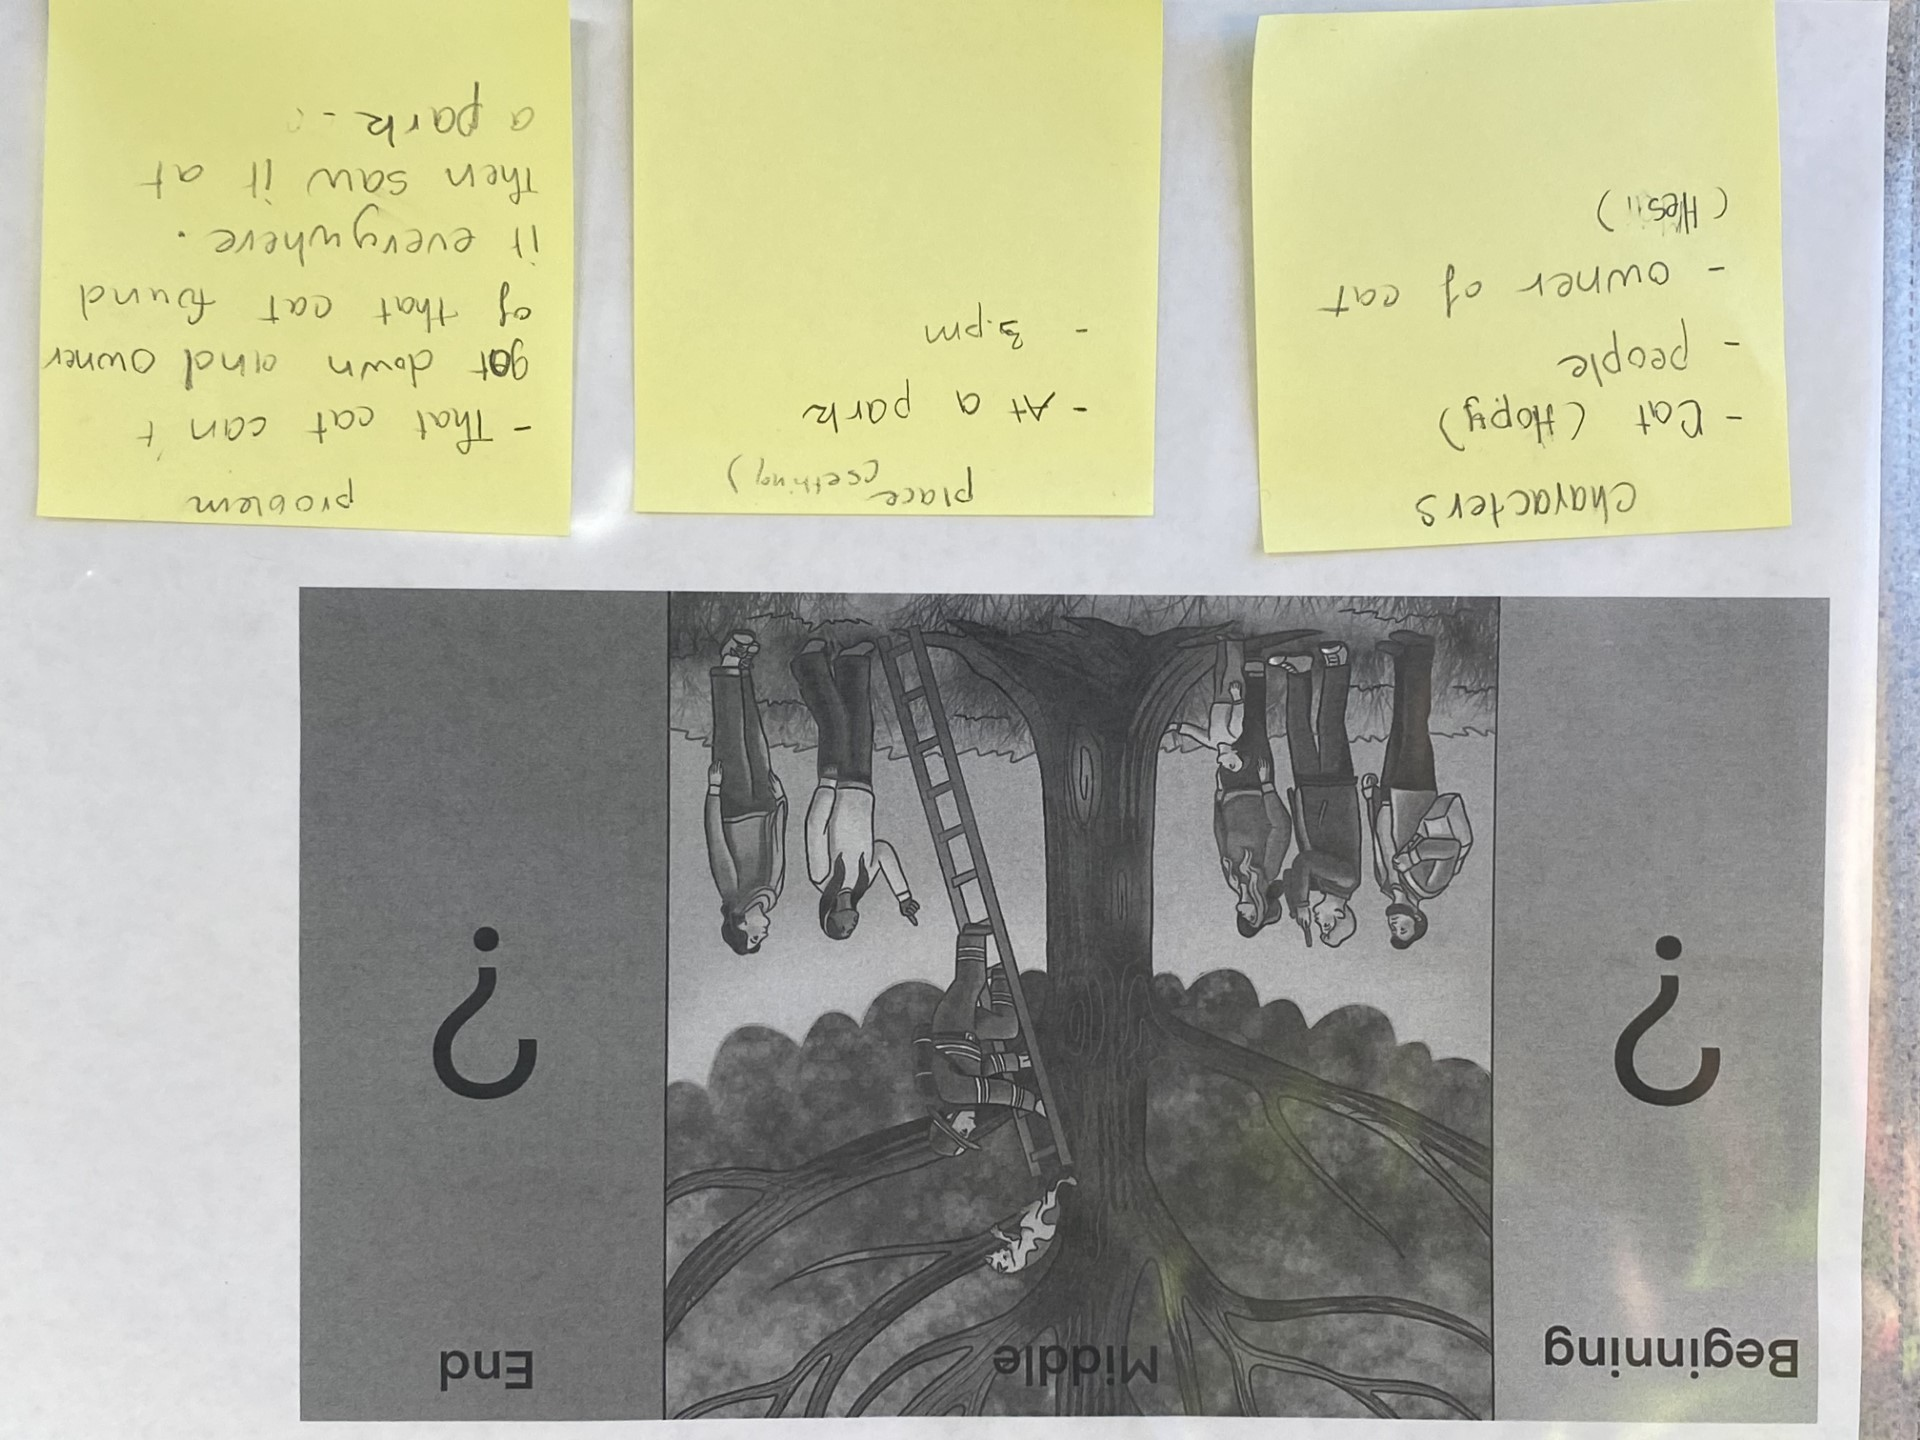 Beginning
Middle
End
?
?
characters
- Cat (Hopy)
- people
- owner of cat
place
(sething)
- At a park
- 3.pm
problem
- That cat can't
got down and owner
of that cat found
it everywhere.
Then saw it at
a park